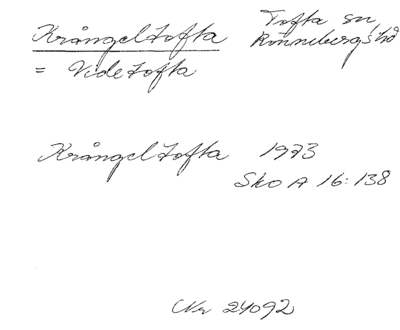 Krångeltofta Tofta sn
= Videtofta Rönnebergs hd
Krångeltofta 1973
Sko A 16:138
Nr 24092